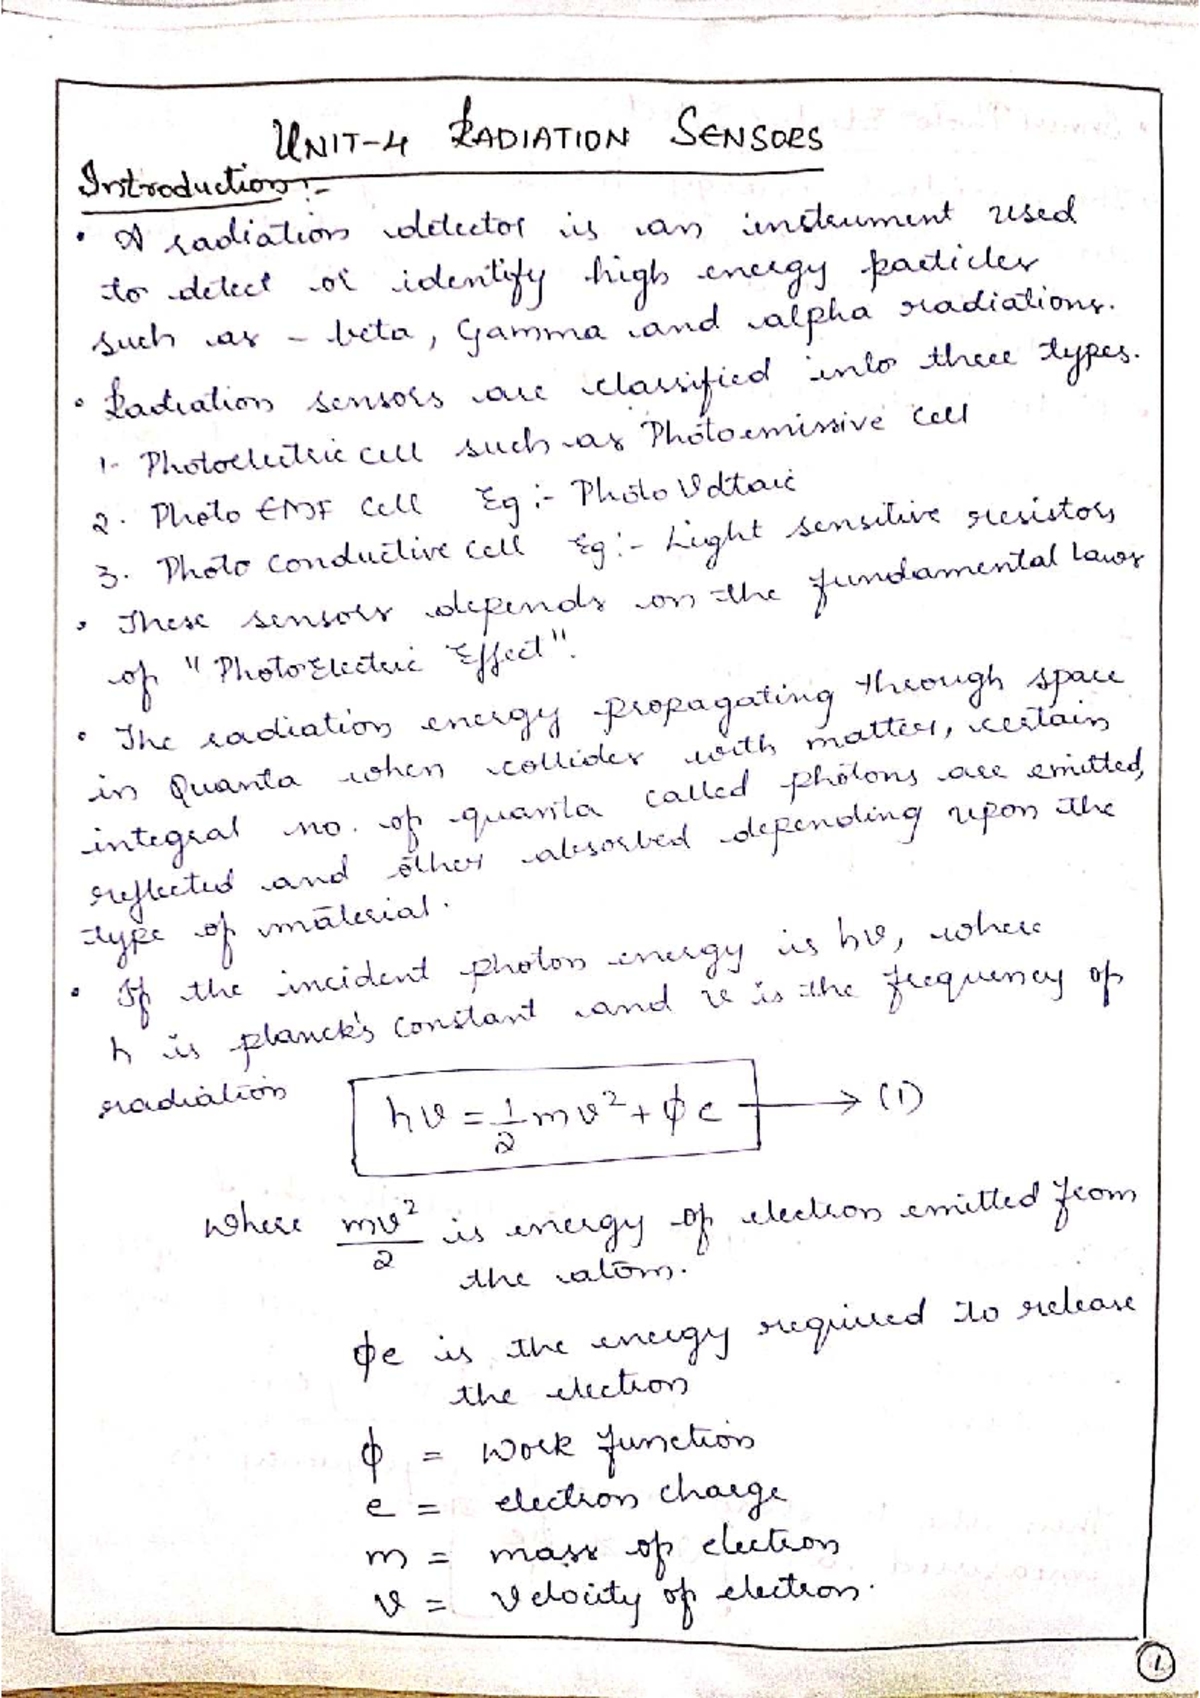 UNIT-4 RADIATION SENSORS
Introduction:-
• A radiation detector is an instrument used
to detect or identify high energy particles
such as - beta, Gamma and alpha radiations.
• Radiation sensors are classified into three types.
1. Photoelectric cell such as Photoemissive Cell
2. Photo EMF Cell Eg:- Photo Voltaic
3. Photo Conductive Cell Eg:- Light sensitive resistors
• These sensors depends on the fundamental Laws
of "PhotoElectric Effect".
• The radiation energy propagating through space
in Quanta when collides with matter, certain
integral no. of quanta called photons are emitted,
reflected and other absorbed depending upon the
type of material.
• If the incident photon energy is hν, where
h is planck's constant and ν is the frequency of
radiation
hν = 1/2 mv² + ϕe → (1)
where mv²/2 is energy of electron emitted from
the atom.
ϕe is the energy required to release
the electron
ϕ = Work function
e = electron charge
m = mass of electron
v = Velocity of electron.
1